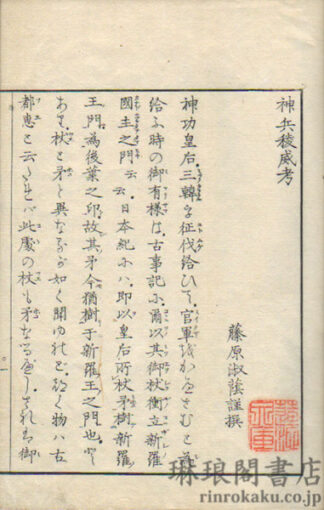 神兵稜威考
藤原淑蔭謹撰
神功皇后三韓を征伐給ひて、官軍
給ふ時の御有様は、古事記に爾以其御杖衝立新羅
國主之門云云、日本紀にハ即以皇后所杖矛樹新羅
王門為後葉之印故其矛今猶樹于新羅王之門也と
あり、杖と矛と異なるが如く聞ゆれど 物ハ古
都恵と云 バ此處の杖も矛なる されば御
琳琅閣書店
rinrokaku.co.jp